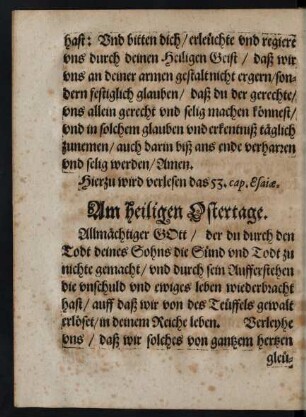 hast: Vnd bitten dich/ erleüchte vnd regiere
vns durch deinen Heiligen Geist / daß wir
vns an deiner armen gestalt nicht ergern/ son-
dern festiglich glauben/ daß du der gerechte/
vns allein gerecht vnd selig machen könnest/
vnd in solchem glauben vnd erkentnuß täglich
zunemen/ auch darin biß ans ende verharren
vnd selig werden/ Amen.
Hierzu wird verlesen das 53. cap. Esaiæ.
Am heiligen Ostertage.
Allmächtiger GOtt / der du durch den
Todt deines Sohns die Sünd vnd Todt zu
nichte gemacht/ vnd durch sein Aufferstehen
die vnschuld vnd ewiges leben wiederbracht
hast/ auff daß wir von des Teüffels gewalt
erlöset/ in deinem Reiche leben. Verleyhe
vns / daß wir solches von gantzem hertzen
gleü-